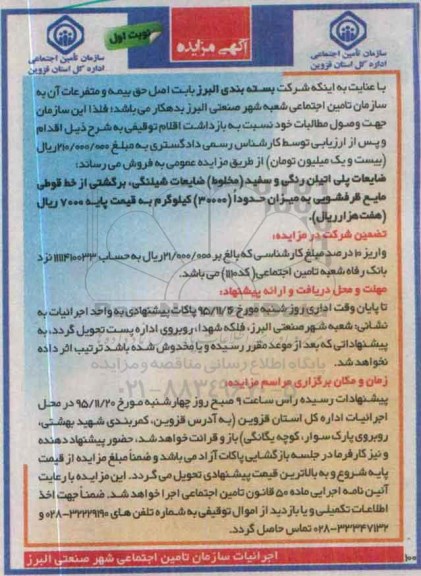 سازمان تأمین اجتماعی
اداره کل استان قزوین
آگهی مزایده
نوبت اول
سازمان تأمین اجتماعی
اداره کل استان قزوین
با عنایت به اینکه شرکت بسته بندی البرز بابت اصل حق بیمه و متفرعات آن به
سازمان تامین اجتماعی شعبه شهر صنعتی البرز بدهکار می باشد؛ فلذا این سازمان
جهت وصول مطالبات خود نسبت به بازداشت اقلام توقیفی به شرح ذیل اقدام
و پس از ارزیابی توسط کارشناس رسمی دادگستری به مبلغ ۲۱۰/۰۰۰/۰۰۰ریال
(بیست و یک میلیون تومان) از طریق مزایده عمومی به فروش می رساند:
ضایعات پلی اتیلن رنگی و سفید (مخلوط) ضایعات شیلنگی، برگشتی از خط قوطی
مایع ظرفشویی به میزان حدوداً (۳۰۰۰۰) کیلوگرم به قیمت پایه ۷۰۰۰ ریال
(هفت هزار ریال).
تضمین شرکت در مزایده:
واریز ۱۰ درصد مبلغ کارشناسی که بالغ بر ۲۱/۰۰۰/۰۰۰ریال به حساب نزد
بانک رفاه شعبه تامین اجتماعی( کد ) می باشد.
مهلت و محل دریافت و ارائه پیشنهاد:
تا پایان وقت اداری روز شنبه مورخ ۹۵/۱۱/۱۶ پاکات پیشنهادی به واحد اجرائیات به
نشانی: شعبه شهر صنعتی البرز، فلکه شهدا، روبروی اداره پست تحویل گردد، به
پیشنهاداتی که بعد از موعد مقرر رسیده و یا مخدوش شده باشد ترتیب اثر داده
نخواهد شد.
پایگاه اطلاع رسانی مناقصه و مزایده
زمان و مکان برگزاری مراسم مزایده:
پیشنهادات رسیده راس ساعت ۹ صبح روز چهارشنبه مورخ ۹۵/۱۱/۲۰ در محل
اجرائیات اداره کل استان قزوین (به آدرس قزوین، کمربندی شهید بهشتی،
روبروی پارک سوار، کوچه یگانگی) باز و قرائت خواهد شد، حضور پیشنهاد دهنده
و نیز کارفرما در جلسه بازگشایی پاکات آزاد می باشد و ضمناً مبلغ مزایده از قیمت
پایه شروع و به بالاترین قیمت پیشنهادی تحویل می گردد. این مزایده با رعایت
آئین نامه اجرایی ماده ۵۰ قانون تامین اجتماعی اجرا خواهد شد. ضمناً جهت اخذ
اطلاعات تکمیلی و یا بازدید از اموال توقیفی به شماره تلفن های ۳۲۲۲۹۱۹۰-۰۲۸ و
۳۲۲۴۷۱۳۲-۰۲۸ تماس حاصل گردد.
اجرائیات سازمان تامین اجتماعی شهر صنعتی البرز